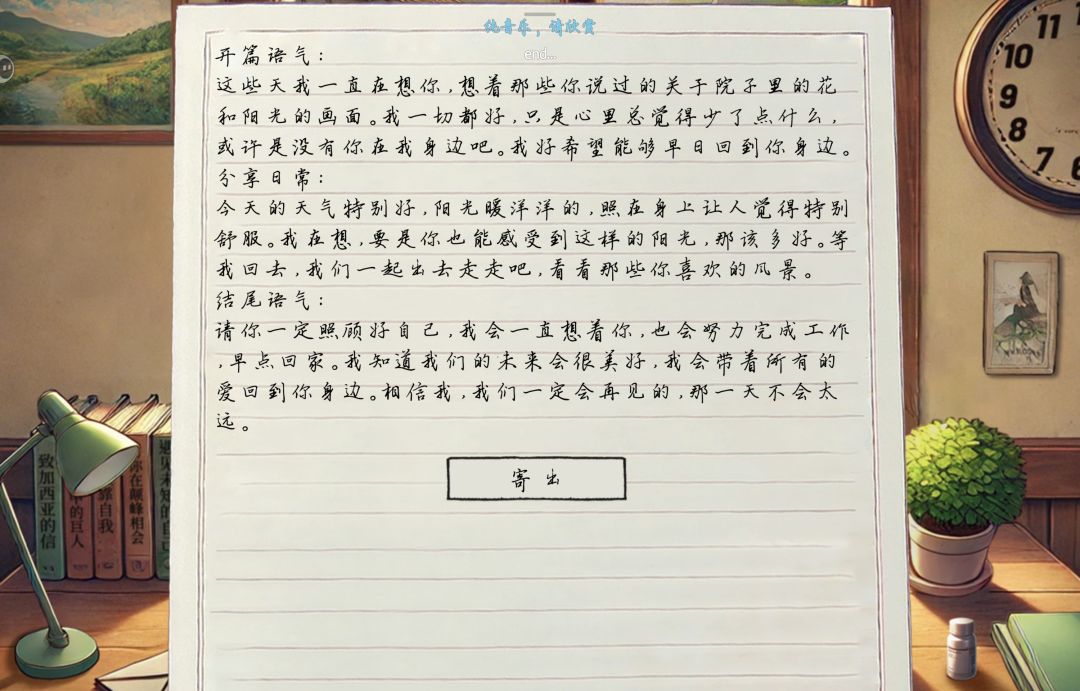 纯音乐，请欣赏
end...
开篇语气：
这些天我一直在想你，想着那些你说过的关于院子里的花
和阳光的画面。我一切都好，只是心里总觉得少了点什么，
或许是没有你在我身边吧。我好希望能够早日回到你身边。
分享日常：
今天的天气特别好，阳光暖洋洋的，照在身上让人觉得特别
舒服。我在想，要是你也能感受到这样的阳光，那该多好。等
我回去，我们一起出去走走吧，看看那些你喜欢的风景。
结尾语气：
请你一定照顾好自己，我会一直想着你，也会努力完成工作
，早点回家。我知道我们的未来会很美好，我会带着所有的
爱回到你身边。相信我，我们一定会再见的，那一天不会太
远。
寄出
致加西亚的信
中的巨人
靠自我
你在巅峰相会
遇见未知的自己
11
10
9
8
7
6